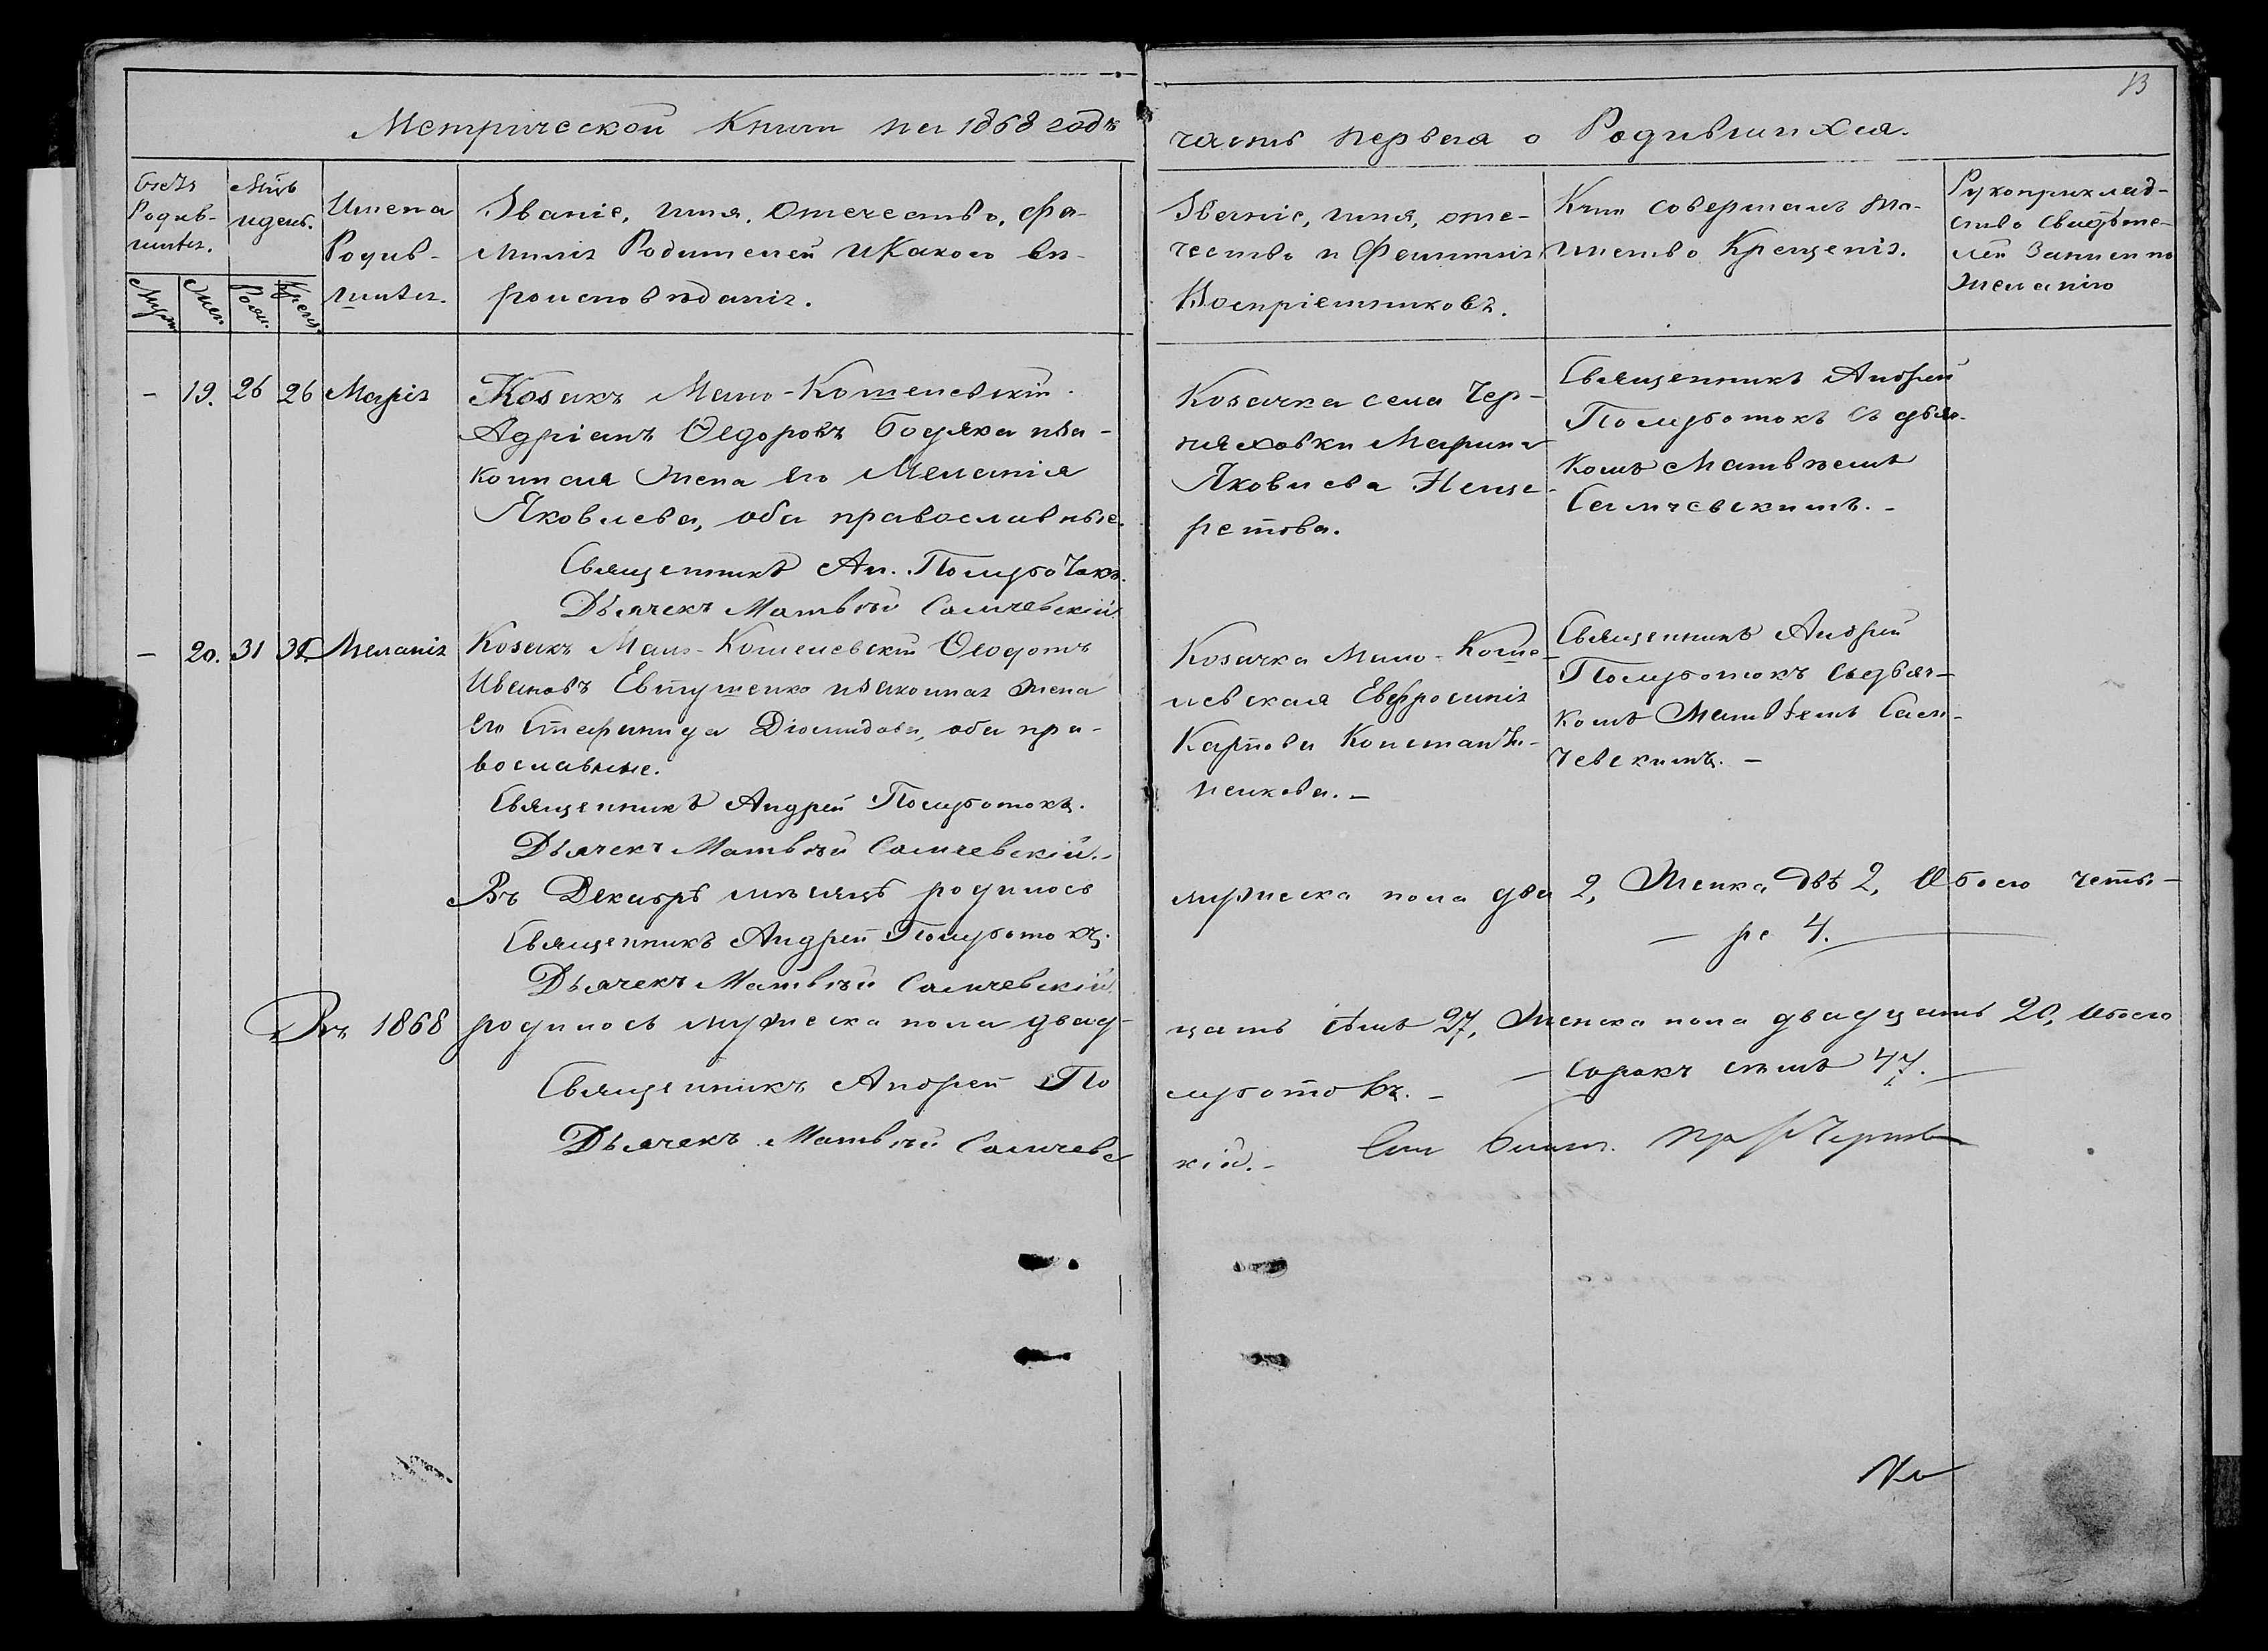 13
Метрической Книги на 1868 годъ
часть первая о Родившихся.
Счетъ Родив-
шихъ.
Мцъ
и день.
Имена
Родив-
шихъ.
Званіе, имя, Отечество, фа-
милія Родителей и Какого вѣ-
роисповѣданія.
Муж.
Жен.
Рожд.
Крещ.
Званіе, имя, оте-
чество и Фамилія
Воспріемниковъ.
Кто совершалъ та-
инство Крещенія.
Рукоприклад-
ство свидѣте-
лей Записи по
Желанію
– 19. 26 26 Марія
Козакъ Мало-Кошелевскій
Адріанъ Ѳедоровъ Бодяка иза-
конная жена его Меланія
Яковлева, оба православные.
Священникъ Ан. Полуботокъ.
Дьячекъ Матвѣй Самчевскій.
Козачка села Чер-
няховки Марина
Яковлева
Священникъ Андрей
Полуботокъ съ дья-
комъ Матвѣемъ
Самчевскимъ. –
– 20. 31 31. Меланія
Козакъ Мало-Кошелевскій Ѳеодотъ
Ивановъ Евтушенко изаконная жена
его Стефанида Діомидова, оба пра-
вославные.
Священникъ Андрей Полуботокъ.
Дьячекъ Матвѣй Самчевскій. –
Козачка Мало-Коше-
левская Евфросинія
Карпова Констант-
ненкова. –
Священникъ Андрей
Полуботокъ съ дьяч-
комъ Матвѣемъ Сам-
чевскимъ. –
Въ Декабрѣ мѣсяцѣ родилось
мужеска пола два 2, Женска двѣ 2, Обоего четы-
– ре 4. –
Священникъ Андрей Полуботокъ.
Дьячекъ Матвѣй Самчевскій.
Въ 1868 родилось мужеска пола двад-
цать семь 27, Женска пола двадцать 20, обоего
– сорокъ семь 47. –
Священникъ Андрей По
луботокъ. –
Дьячекъ Матвѣй Самчевс
кій. –